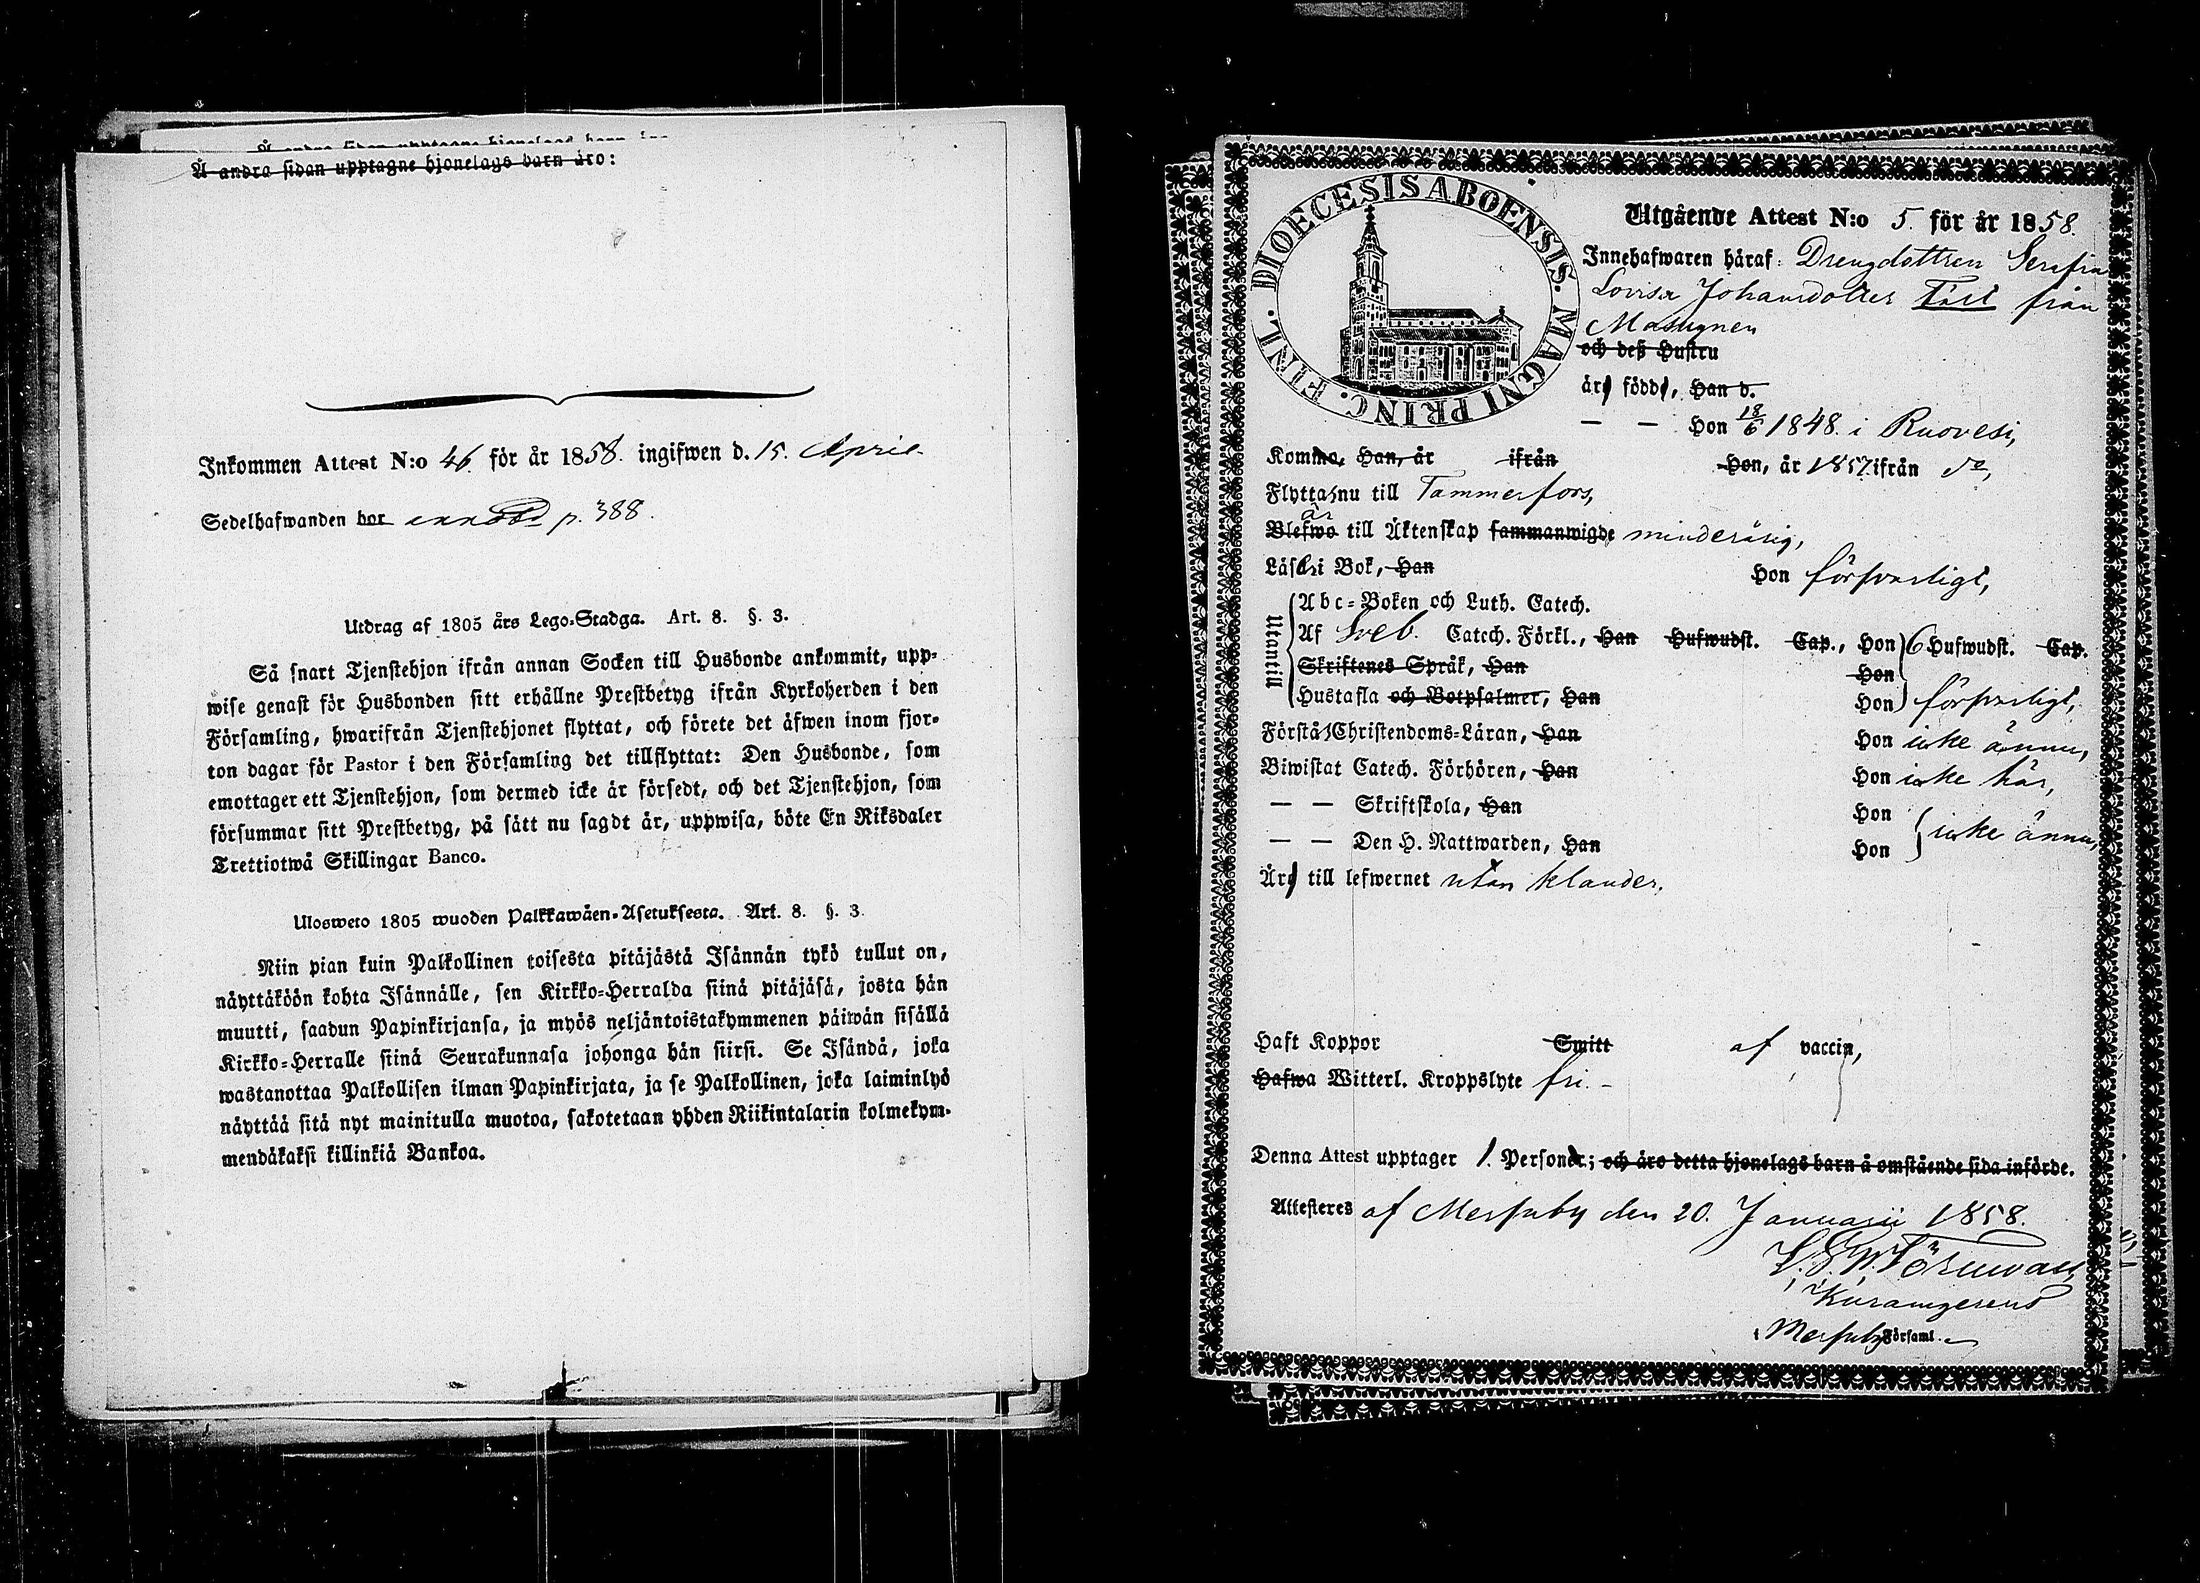 Å andra sidan upptagne hjonelags barn äro:
Inkommen Attest N:o 46 för år 1858. ingifwen d. 15. April
Sedelhafwanden bor p. 388.
Utdrag af 1805 års Lego-Stadga. Art. 8. §. 3.
Så snart Tjenstehjon ifrån annan Socken till Husbonde ankommit, upp-
wise genast för Husbonden sitt erhållne Prestbetyg ifrån Kyrkoherden i den
Församling, hwarifrån Tjenstehjonet flyttat, och förete det äfwen inom fjor-
ton dagar för Pastor i den Församling det tillflyttat: Den Husbonde, som
emottager ett Tjenstehjon, som dermed icke är försedt, och det Tjenstehjon, som
försummar sitt Prestbetyg, på sätt nu sagdt är, uppwisa, böte En Riksdaler
Trettiotwå Skillingar Banco.
Ulosweto 1805 wuoden Palkkawäen-Asetuksesta. Art. 8. §. 3.
Niin pian kuin Palkollinen toisesta pitäjästä Isännän tykö tullut on,
näyttäköön kohta Isännälle, sen Kirkko-Herralda siinä pitäjäsä, josta hän
muutti, saadun Papinkirjansa, ja myös neljäntoistakymmenen päiwän sisällä
Kirkko-Herralle siinä Seurakunnasa johonga hän siirsi. Se Isändä, joka
wastanottaa Palkollisen ilman Papinkirjata, ja se Palkollinen, joka laiminlyö
näyttää sitä nyt mainitulla muotoa, sakotetaan yhden Riikintalarin kolmekym-
mendäkaksi killinkiä Bankoa.
DIOECESIS ABOENSIS. MAGNI PRINC. FINL.
Utgående Attest N:o 5. för år 1858.
Innehafwaren häraf: Drengdottren Serafia
Lovisa Johansdotter från
Masugnen
och deß Hustru
äro född, Han d.
— — Hon 18/6 1848. i Ruovesi,
Komma, Han, år ifrån Hon, år 1857 ifrån do,
Flytta nu till Tammerfors,
är
Blefwo till Äktenskap sammanwigde minderårig,
Läsa i Bok, Han Hon försvarligt,
Utantill
Abc-Boken och Luth. Catech.
Af Sveb. Catech. Förkl., Han Hufwudst. Cap., Hon 6 Hufwudst. Cap.
Skriftenes Språk, Han Hon
Hustafla och Botpsalmer, Han Hon försvarligt,
Förstå Christendoms-Läran, Han Hon icke ännu,
Biwistat Catech. Förhören, Han Hon icke här,
— — Skriftskola, Han Hon
— — Den H. Nattwarden, Han Hon icke ännu,
Äro till lefwernet utan klander.
Haft Koppor Smitt af vaccin,
Hafwa Witterl. Kroppslyte fri. -
Denna Attest upptager 1. Personer; och äro detta hjonelags barn å omstående sida införde.
Attesteres af Messuby den 20. Januarii 1858.
Törnwall
i Messuby Församl.